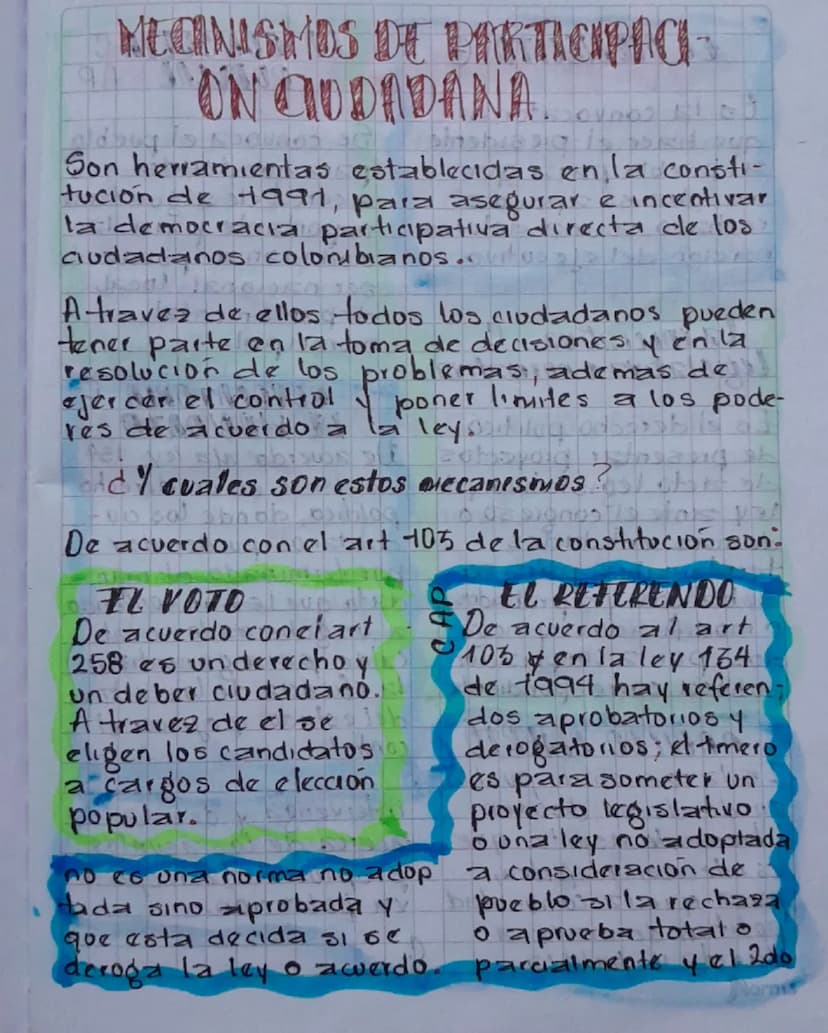 MECANISMOS DE PARTICIPACI-
ÓN CIUDADANA.
Son herramientas establecidas en la consti-
tución de 1991, para asegurar e incentivar
la democracia participativa directa de los
ciudadanos colombianos..
A travez de ellos todos los ciudadanos pueden
tener parte en la toma de decisiones y en la
resolución de los problemas, ademas de
ejercer el control y poner limites a los pode-
res de acuerdo a la ley.
¿Y cuales son estos mecanismos?
De acuerdo con el art 103 de la constitución son:
EL VOTO
De acuerdo con el art
258 es un derecho y
un deber ciudadano.
A travez de el se
eligen los candidatos
a cargos de elección
popular.
EL REFERENDO
De acuerdo al art
103 y en la ley 134
de 1994 hay referen-
dos aprobatorios y
derogatorios; el 1mero
es para someter un
proyecto legislativo
o una ley no adoptada
a consideración de
pueblo si la rechaza
o aprueba total o
parcialmente y el 2do
no es una norma no adop
tada sino aprobada y
que esta decida si se
deroga la ley o acuerdo.
Norma